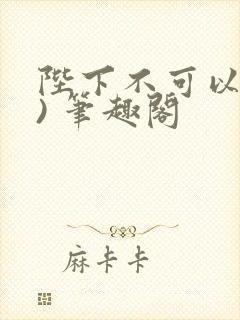 陛下不可以
)筆趣閣
麻卡卡